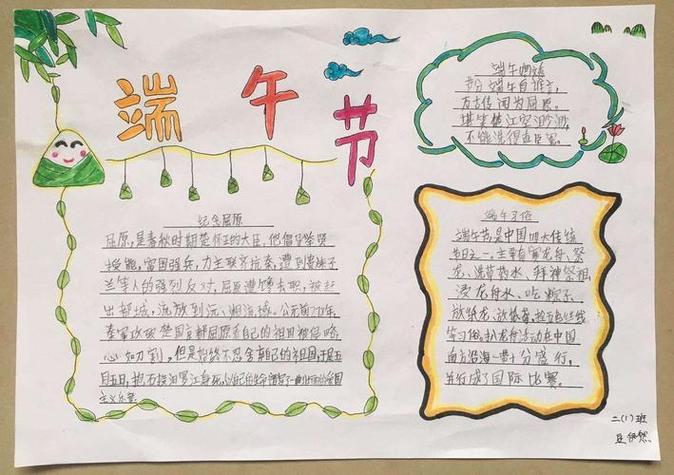 端午节
端午由语
节分端午自谁言，
万古传闻为屈原。
堪笑楚江空渺渺，
不能洗得直臣冤。
纪念屈原
屈原，是春秋时期楚怀王的大臣，他倡导举贤
授能，富国强兵，力主联齐抗秦，遭到贵族子
兰等人的强烈反对，屈原遭馋去职，被赶
出都城，流放到沅、湘流域。公元前278年，
秦军攻破楚国京都屈原看自己的祖国被侵略，
心如刀割，但是始终不忍舍弃自己的祖国，于五月
五日，抱石投汨罗江身死，以自己的生命谱写了一曲壮丽的爱国
主义乐章
端午习俗
端午节是中国四大传统
节日之一，主要有赛龙舟、祭
龙、洗草药水、拜神祭祖
浸龙舟水、吃粽子、
放纸龙、放纸鸢、拴五色丝线
等习俗，扒龙舟活动在中国
南方沿海一带十分盛行，
并行成了国际比赛。
二(1)班